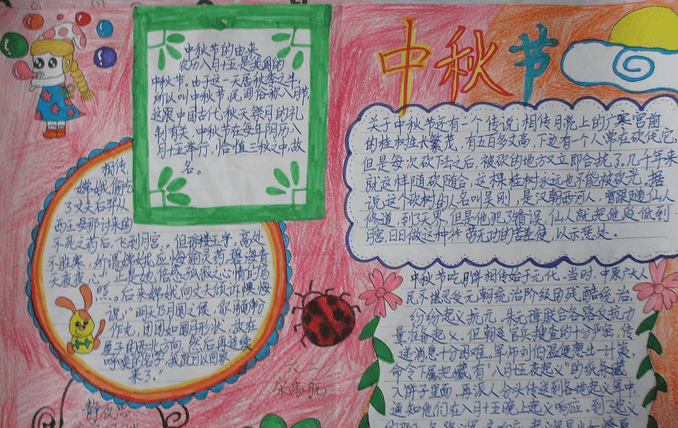 中秋节
中秋节的由来
农历八月十五是我国的
中秋节。由于这一天居秋季之半
所以叫中秋节，民间俗称八月节
这跟中国古代秋天祭月的礼
制有关。中秋节在每年阴历八
月十五举行，恰值三秋之中,故
名。
关于中秋节还有一个传说:相传月亮上的广寒宫前
的桂树生长繁茂，有五百多丈高，下边有一个人常在砍伐它
但是每次砍下去之后，被砍的地方又立即合拢了，几千年来
就这样随砍随合，这棵桂树永远也不能被砍光。据
说这个砍树的人名叫吴刚，是汉朝西河人，曾跟随仙人
修道，到了天界，但是他犯了错误，仙人就把他贬低到
月宫，日日做这种徒劳无功的苦差使，以示惩处。
相传，
嫦娥偷吃
了丈夫后羿从
西王母那讨来的
不死之药后，飞到月宫。但琼楼玉宇，高处
不胜寒，所谓嫦娥应悔偷灵药，碧海青
天夜夜心，正是她倍感孤寂之心情的写
照。后来嫦娥向丈夫倾诉懊悔
说："明天乃月圆之候，你用面粉
作丸，团团如圆月形状，放在
屋子的西北方向，然后再连续
呼唤的名字,我就可以回家
来了。"
中秋节吃月饼相传始于元代。当时，中原广大人
民不堪忍受元朝统治阶级的残酷统治，
纷纷起义抗元。朱元璋联合各路反抗力
量准备起义。但朝廷官兵搜查的十分严密，传
递消息十分困难。军师刘伯温便想出一计策，
命令下属把藏有"八月十五夜起义"的纸条藏
入饼子里面，再派人分头传送到各地起义军中，
通知他们在八月十五日晚上起义响应。到了起义